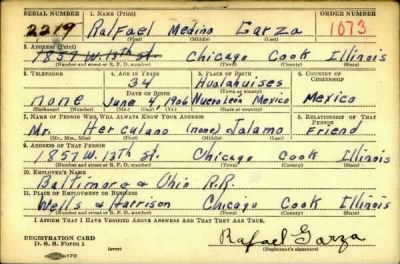 SERIAL NUMBER 1. NAME (Print) ORDER NUMBER
2219 Ralfael Medina Garza 1673
(First) (Middle) (Last)
2. ADDRESS (Print)
1857 W. 13th st. Chicago Cook Illinois
(Number and street or R. F. D. number) (Town) (County) (State)
3. TELEPHONE 4. AGE IN YEARS 5. PLACE OF BIRTH 6. COUNTRY OF CITIZENSHIP
34 Hualahuises
DATE OF BIRTH (Town or county)
none June 4, 1906 Nuevo León Mexico Mexico
(Exchange) (Number) (Mo.) (Day) (Yr.) (State or country)
7. NAME OF PERSON WHO WILL ALWAYS KNOW YOUR ADDRESS 8. RELATIONSHIP OF THAT PERSON
Mr. Herculano (none) Jalamo Friend
(Mr., Mrs., Miss) (First) (Middle) (Last)
9. ADDRESS OF THAT PERSON
1857 W. 13th St. Chicago Cook Illinois
(Number and street or R. F. D. number) (Town) (County) (State)
10. EMPLOYER'S NAME
Baltimore & Ohio R.R.
11. PLACE OF EMPLOYMENT OR BUSINESS
Wells & Harrison Chicago Cook Illinois
(Number and street or R. F. D. number) (Town) (County) (State)
I AFFIRM THAT I HAVE VERIFIED ABOVE ANSWERS AND THAT THEY ARE TRUE.
REGISTRATION CARD
D. S. S. Form 1 (over) Rafael Garza
(Registrant's signature)